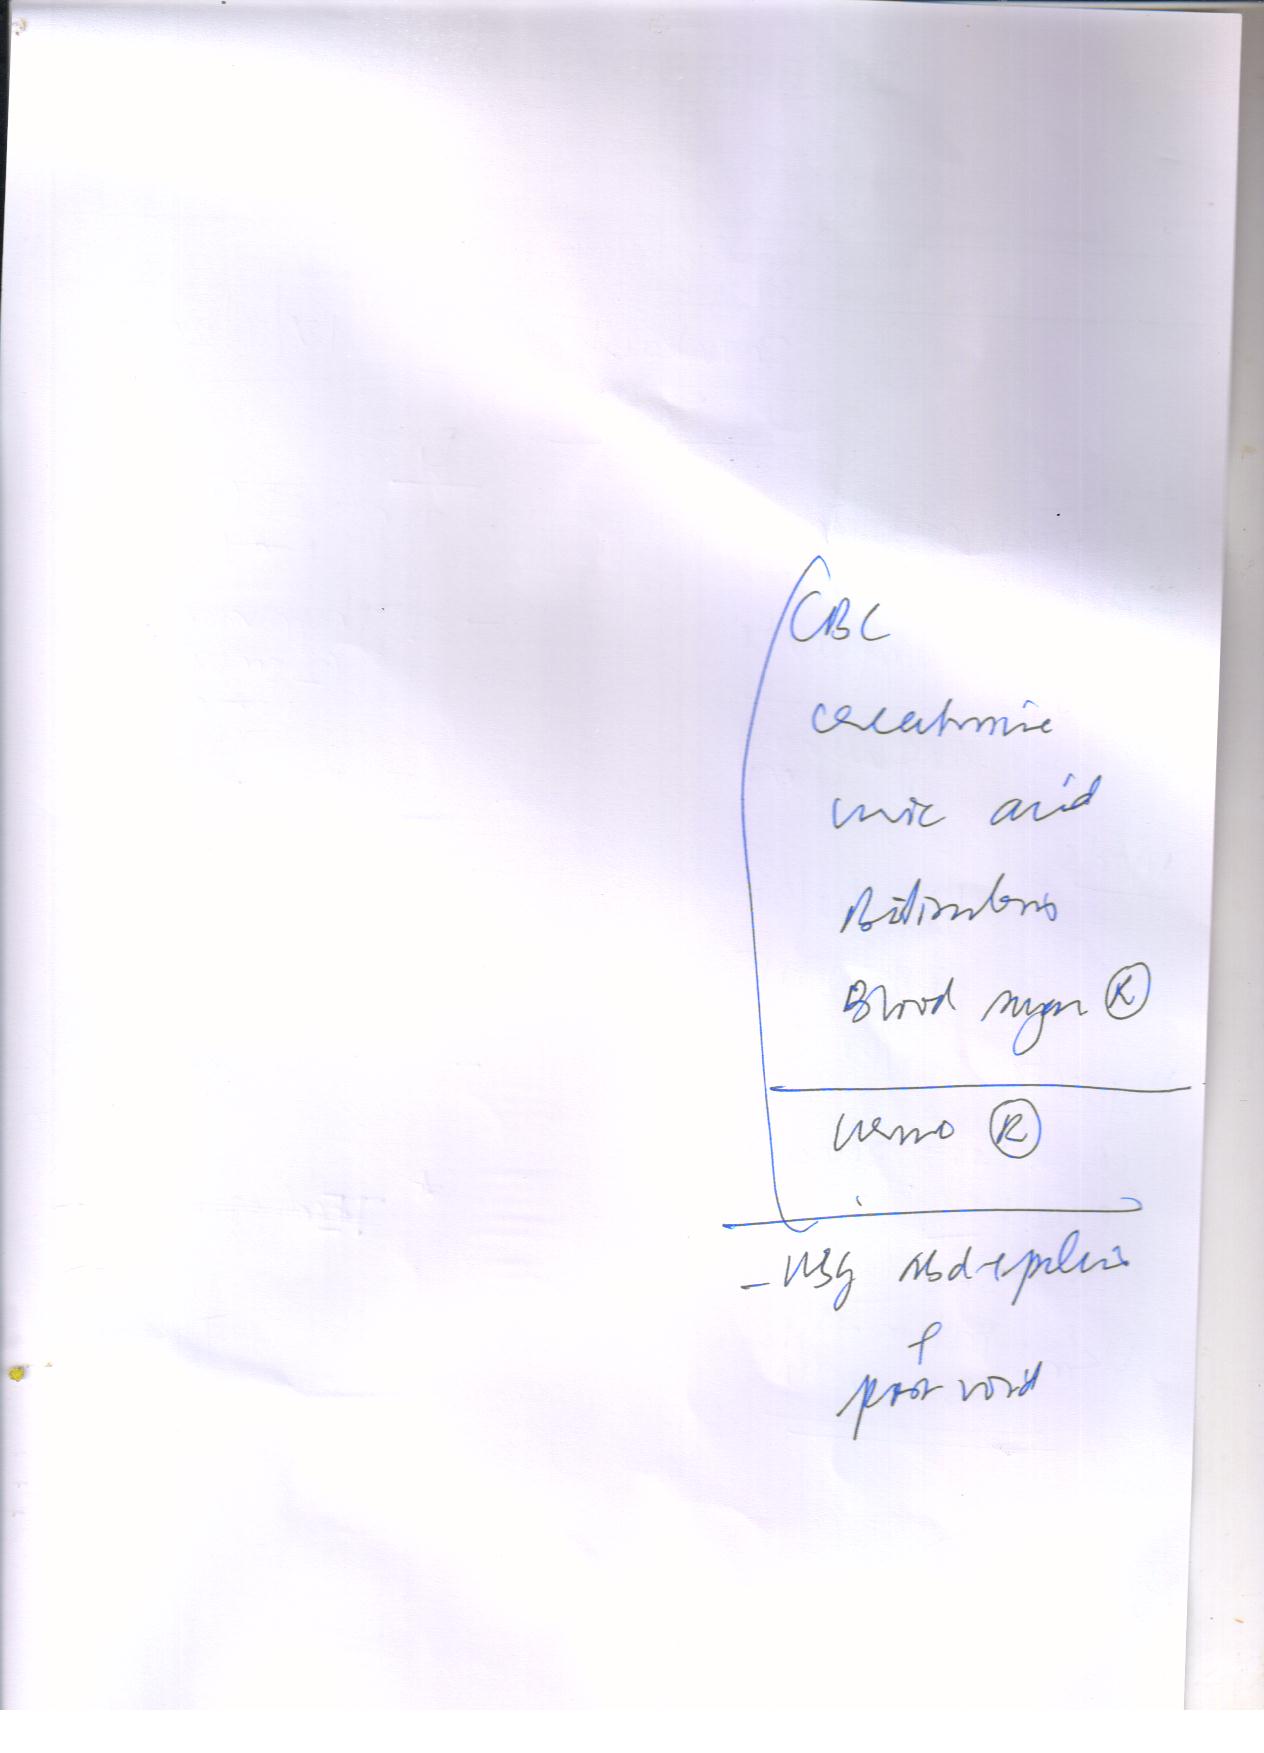 CBC
creatinine
uric acid
Bilirubin
Blood sugar (R)
Urine (R)
- USG Abd + pelvis
+
post void